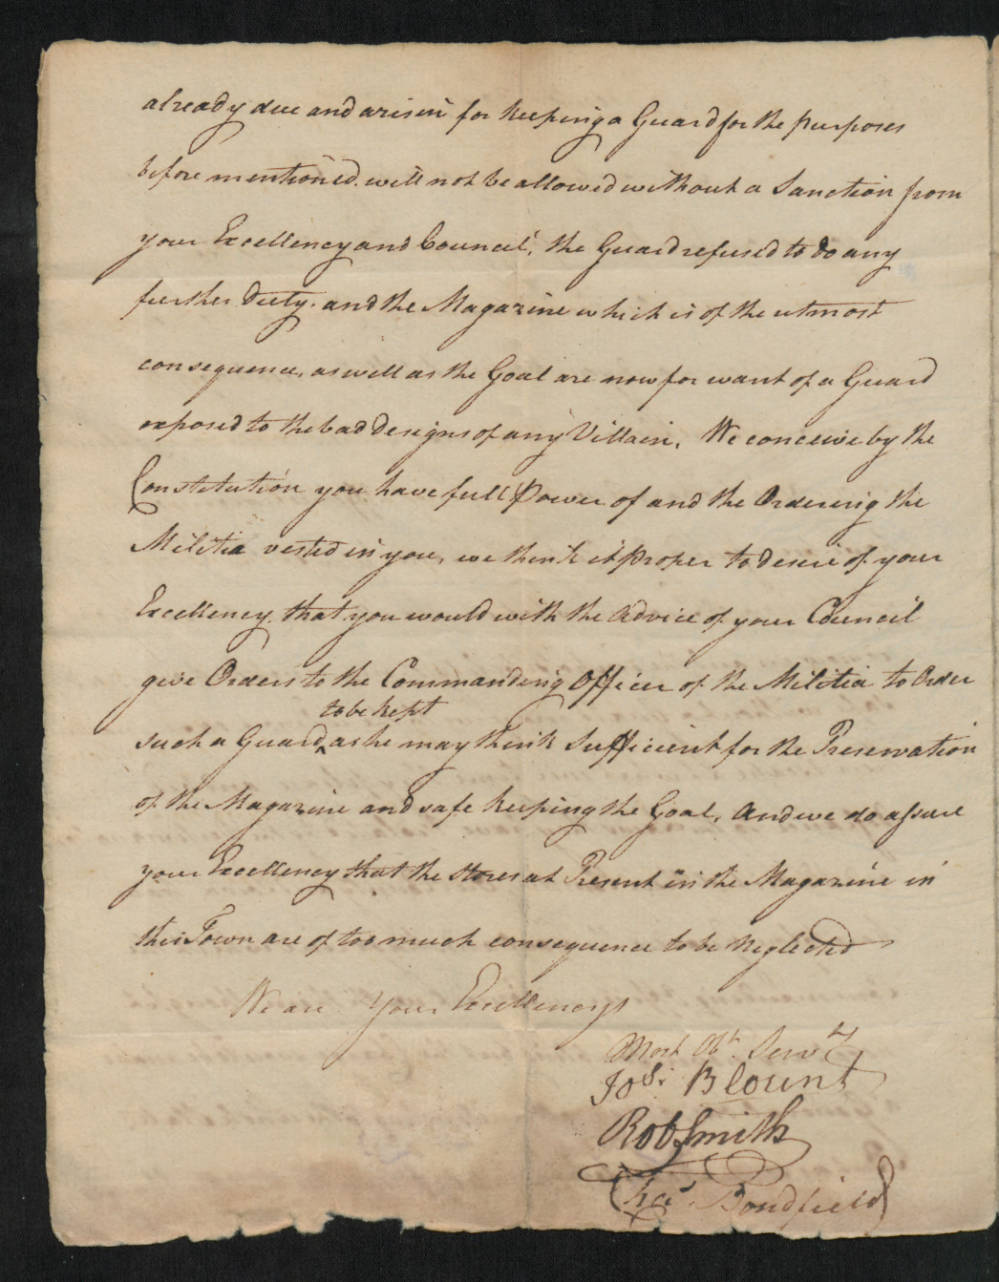 already due and arisin for keeping a Guard for the purposes
before mentioned. will not be allowed without a Sanction from
your Excellency and Council, the Guard refused to do any
further Duty. and the Magazine which is of the utmost
consequence, as well as the Goal are now for want of a Guard
exposed to the bad Designs of any Villain, We conceive by the
Constitution you have full Power of and the Ordering the
Militia vested in you, we think it Proper to Desire of your
Excellency that you would with the Advice of your Council
give Orders to the Commanding Officer of the Militia to Order
to be kept
such a Guard, as he may think Sufficient for the Preservation
of the Magazine and safe keeping the Goal, And we do assure
your Excellency that the Stores at Present in the Magazine in
this Town are of too much consequence to be Neglected
We are Your Excellencys
Most Obt. Servts
Jos. Blount
Rob Smith
Chas. Bondfield